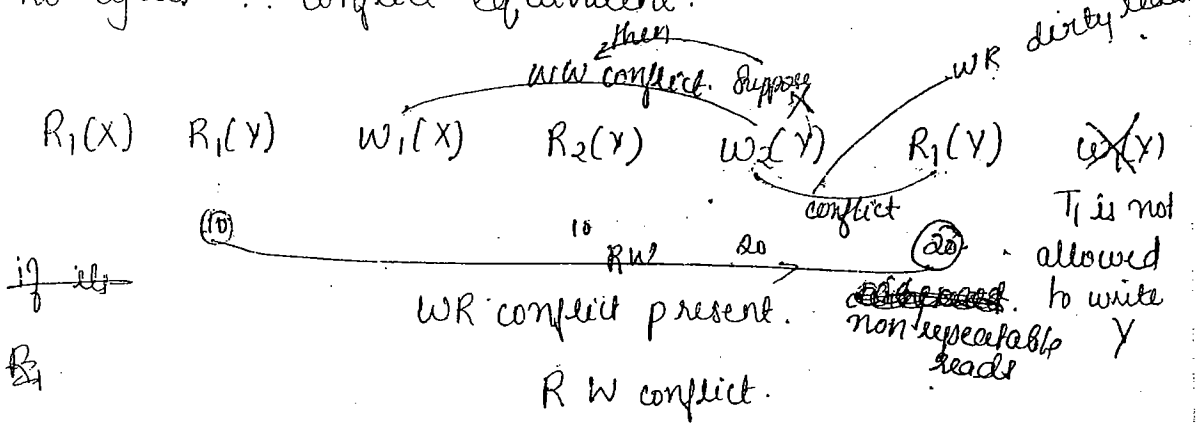 no cycles ∴ conflict equivalent.
then
WW conflict. Suppose
X
WR dirty read
R₁(X) R₁(Y) W₁(X) R₂(Y) W₂(Y) R₁(Y) W₁(Y)
conflict
T₁ is not
allowed
to write
Y
10 10 RW 20 20
if its
WR conflict present. non repeatable
reads
R W conflict.